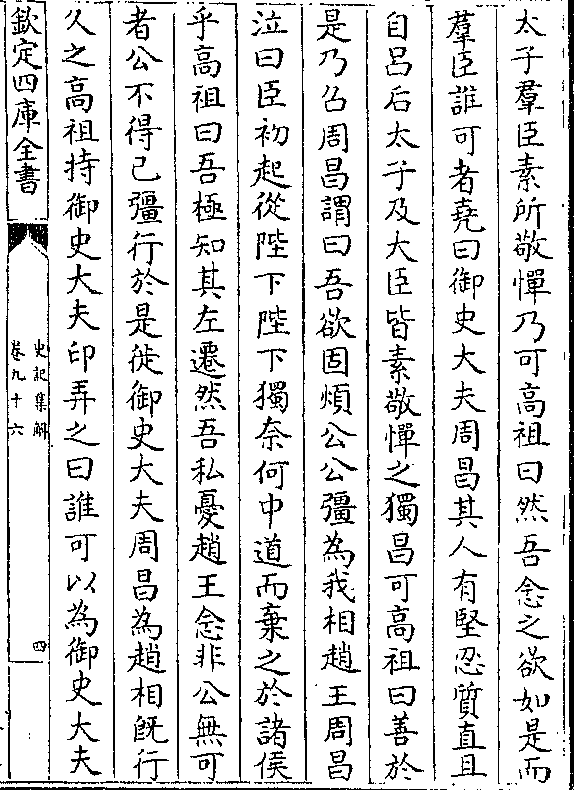 太子羣臣素所敬憚乃可高祖曰然吾念之欲如是而
羣臣誰可者堯曰御史大夫周昌其人有堅忍質直且
自呂后太子及大臣皆素敬憚之獨昌可高祖曰善於
是乃召周昌謂曰吾欲固煩公公彊為我相趙王周昌
泣曰臣初起從陛下陛下獨奈何中道而棄之於諸侯
乎高祖曰吾極知其左遷然吾私憂趙王念非公無可
者公不得已彊行於是徙御史大夫周昌為趙相既行
久之高祖持御史大夫印弄之曰誰可以為御史大夫
欽定四庫全書
史記集解
卷九十六
四